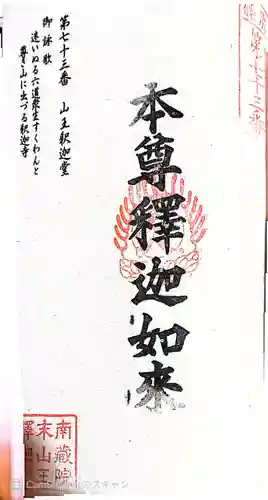 第七十三番
本尊釋迦如來
第七十三番 山王釈迦堂
御詠歌
迷いぬる六道衆生すくわんと
尊き山に出づる釈迦寺
南蔵院
末山王
釋迦
スキャン